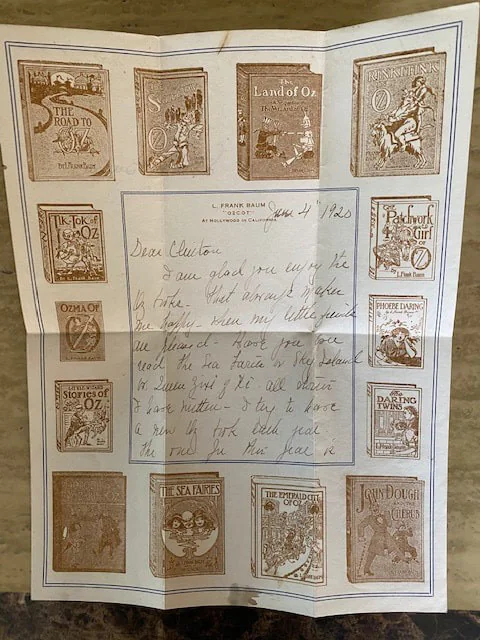 THE ROAD TO OZ
BY L. FRANK BAUM
S OZ
The Land of Oz
RINKITINK
OZ
L. FRANK BAUM
"OZCOT"
AT HOLLYWOOD IN CALIFORNIA
June 4" 1920
Dear Clinton
I am glad you enjoy the
Oz books - That always makes
me happy - when my little friends
are pleased - Have you ever
read the Sea Fairies or Sky Island
or Queen Zixi of Ix all stories
I have written - I try to have
a new Oz book each year
The one for this year is
TIK-TOK of OZ
BY L. FRANK BAUM
The Patchwork Girl OF OZ
by L. Frank Baum
OZMA OF
OZ
PHOEBE DARING
LITTLE WIZARD
Stories of OZ
The DARING TWINS
THE SEA FAIRIES
BY L. FRANK BAUM
THE EMERALD CITY OF OZ
JOHN DOUGH
AND THE
CHERUB